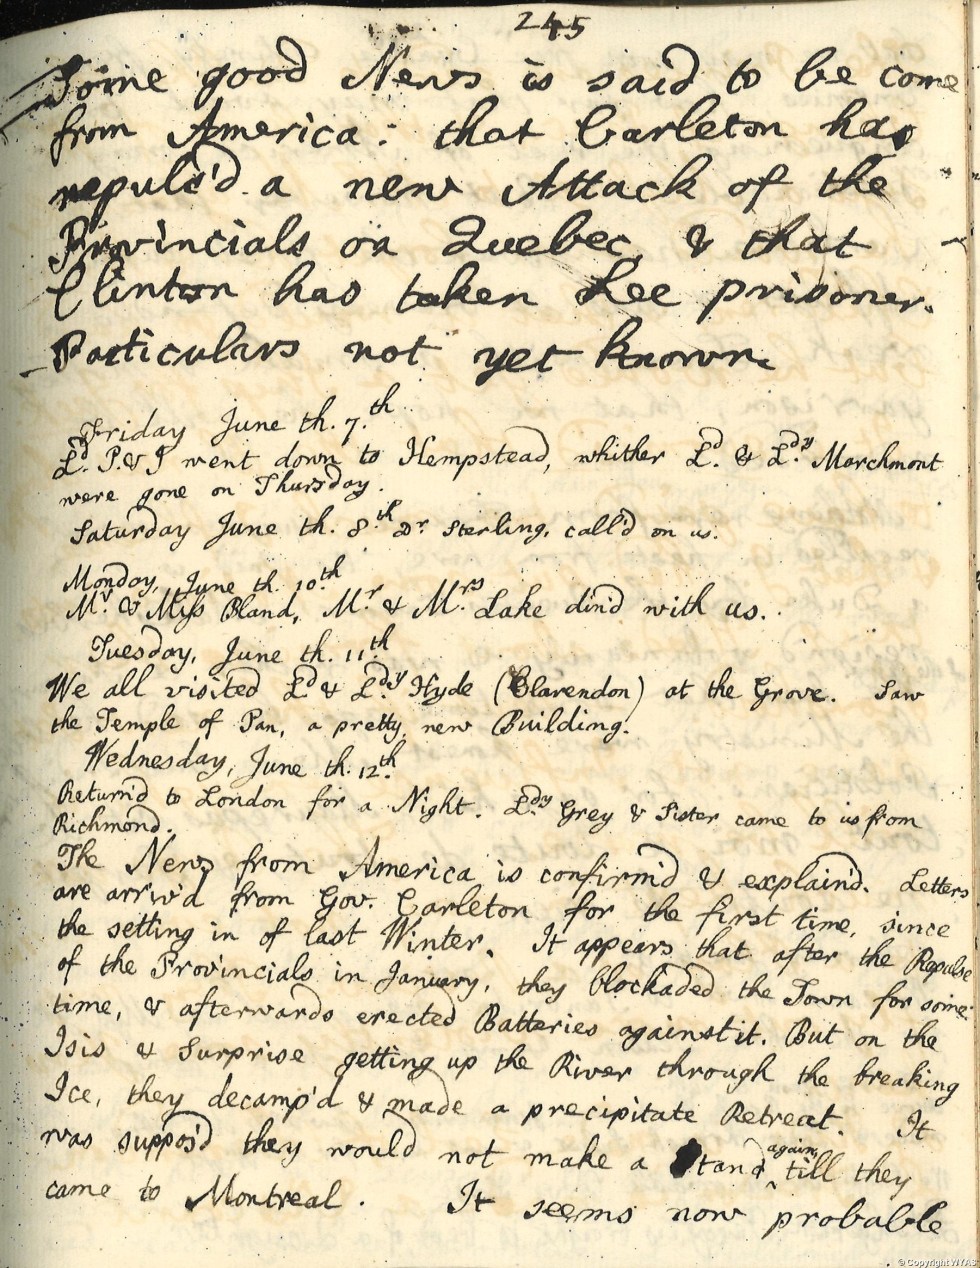 245
Some good News is said to be come
from America: that Carleton has
repuls'd a new Attack of the
Provincials on Quebec, & that
Clinton has taken Lee prisoner.
Particulars not yet known.
Friday June th. 7.th
Ld. P. & I went down to Hempstead, whither Ld. & Ldy. Marchmont
were gone on Thursday.
Saturday June th. 8th Dr Sterling, call'd on us.
Monday, June th. 10th
Mr. & Miss Bland, Mr. & Mrs. Lake din'd with us.
Tuesday, June th. 11th
We all visited Ld & Ldy. Hyde (Clarendon) at the Grove. Saw
the Temple of Pan, a pretty new Building.
Wednesday, June th. 12th.
Return'd to London for a Night. Ldy. Grey & Sister came to us from
Richmond.
The News from America is confirm'd & explain'd. Letters
are arriv'd from Gov. Carleton for the first time, since
the setting in of last Winter. It appears that after the Repulse
of the Provincials in January, they blockaded the Town for some
time, & afterwards erected Batteries against it. But on the
Isis & Surprise getting up the River through the breaking
Ice, they decamp'd & made a precipitate Retreat. It
was suppos'd they would not make a Stand again, till they
came to Montreal. It seems now probable
© Copyright WYAS